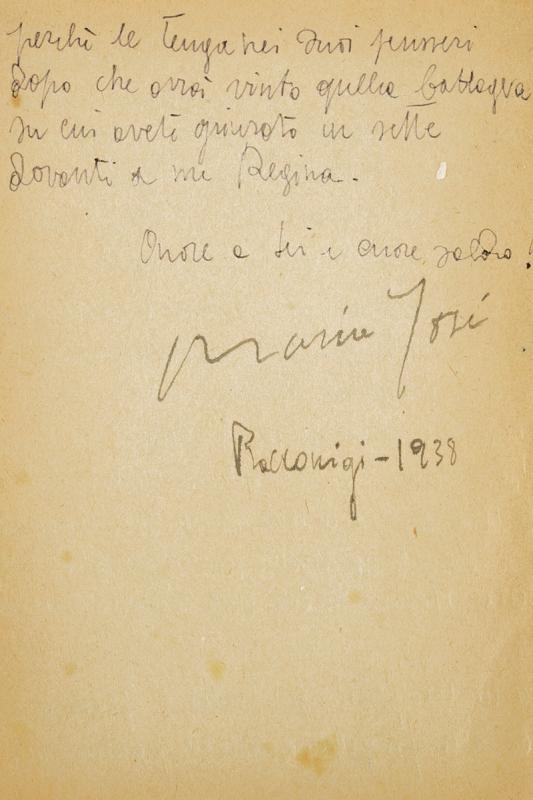 perchè le tenga nei suoi pensieri
dopo che avrai vinto quella battaglia
su cui avete giurato in sette
davanti a me Regina.
Onore a Lei e cuore saldo!
Maria José
Racconigi - 1938